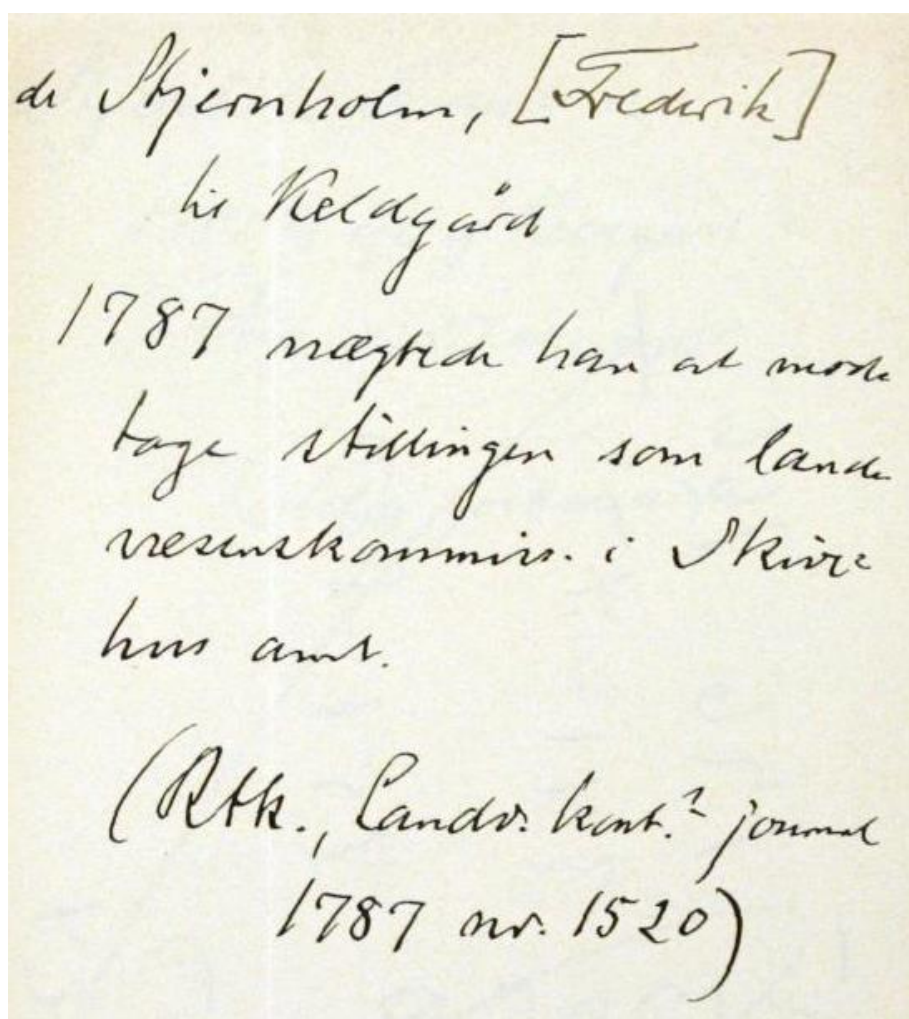 de Stjernholm, [Frederik]
til Keldgård
1787 nægtede han at mod-
tage stillingen som land-
væsenskommiss. i Skive-
hus amt.
(Rtk., Landv. kont.s journal
1787 nr. 1520)